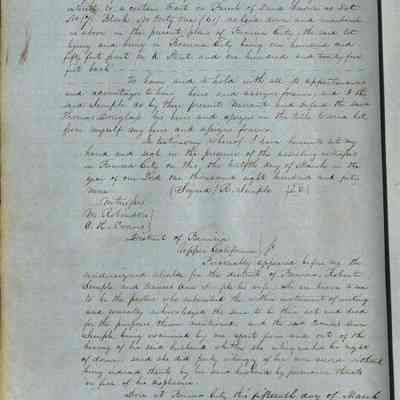 to a certain tract or Parcel of Land known as Lot
No (7) Block No Forty One (41) as laid down and numbered
as above in the present plan of Benicia City, the said lot
lying and being in Benicia City being one hundred and
fifty feet front on K Street and one hundred and twenty five
feet back
To have and to hold with all the appurtenances
and advantages to him heirs and assigns forever, and I the
said Semple do by these presents warrant and defend the said
Thomas Douglas his heirs and assigns in the title to said lot
from myself my heirs and assigns forever.
In testimony whereof I have hereunto set my
hand and seal in the presence of the subscribing witnesses
in Benicia City on this the twelfth day of March in the
year of our Lord one thousand eight hundred and forty
nine (Signed) R. Semple
Witnesses
W. Robinson
District of Benicia
Upper California
Personally appeared before me the
undersigned alcalde for the district of Benicia, Robert
Semple and Frances Ann Semple his wife who are known to me
to be the parties who subscribed the within instrument of writing
and severally acknowledged the same to be their act and deed
for the purposes therein mentioned, and the said Frances Ann
Semple being examined by me apart from and out of the
hearing of her said husband whether she relinquished her right
of dower said she did fully of her own accord without
being induced thereto by her said husband by persuasion threats
or fear of his displeasure.
Done at Benicia City this fifteenth day of March